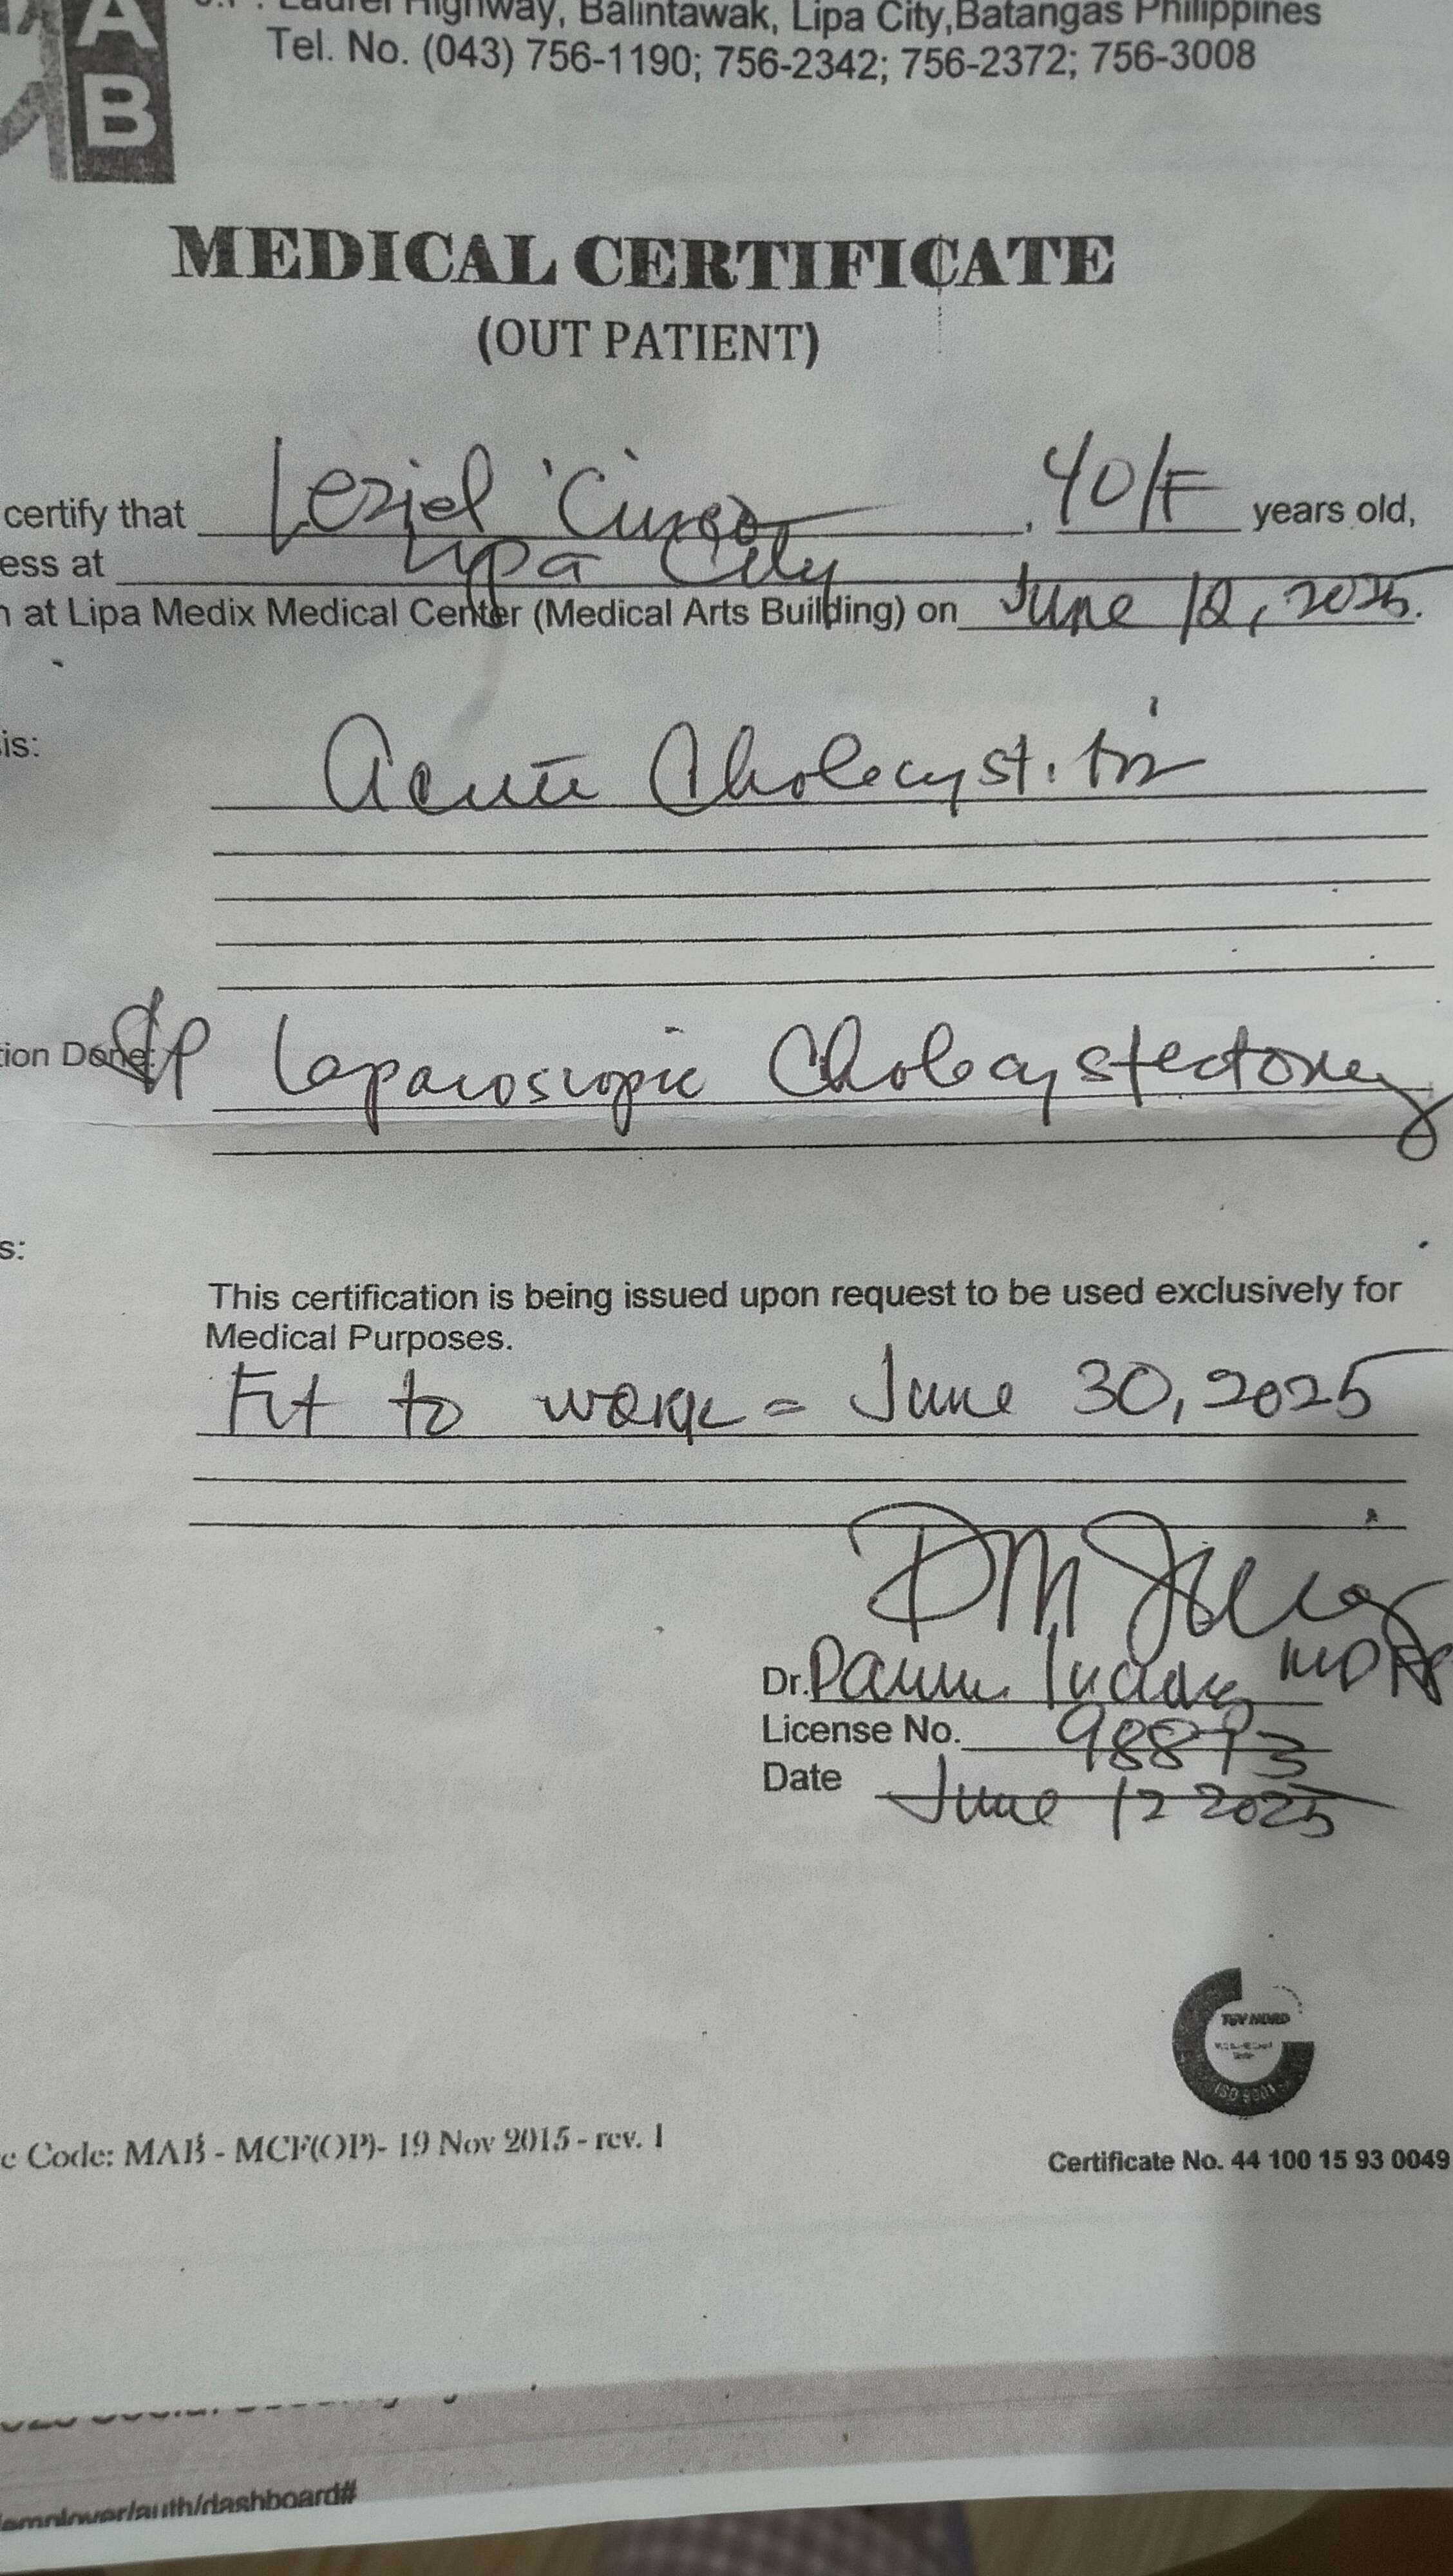 A
B
Laurel Highway, Balintawak, Lipa City,Batangas Philippines
Tel. No. (043) 756-1190; 756-2342; 756-2372; 756-3008
MEDICAL CERTIFICATE
(OUT PATIENT)
certify that Leziel Cinco, 40/F years old,
ess at Lipa City
n at Lipa Medix Medical Center (Medical Arts Building) on June 12, 2025.
is: Acute Cholecystitis
tion Done: S/P Laparoscopic Cholecystectomy
s:
This certification is being issued upon request to be used exclusively for
Medical Purposes.
Fit to work = June 30, 2025
Dr.
License No. 98893
Date June 12 2025
TÜV NORD
ISO 9001
e Code: MAB - MCF(OP)- 19 Nov 2015 - rev. 1
Certificate No. 44 100 15 93 0049
/employer/auth/dashboard#